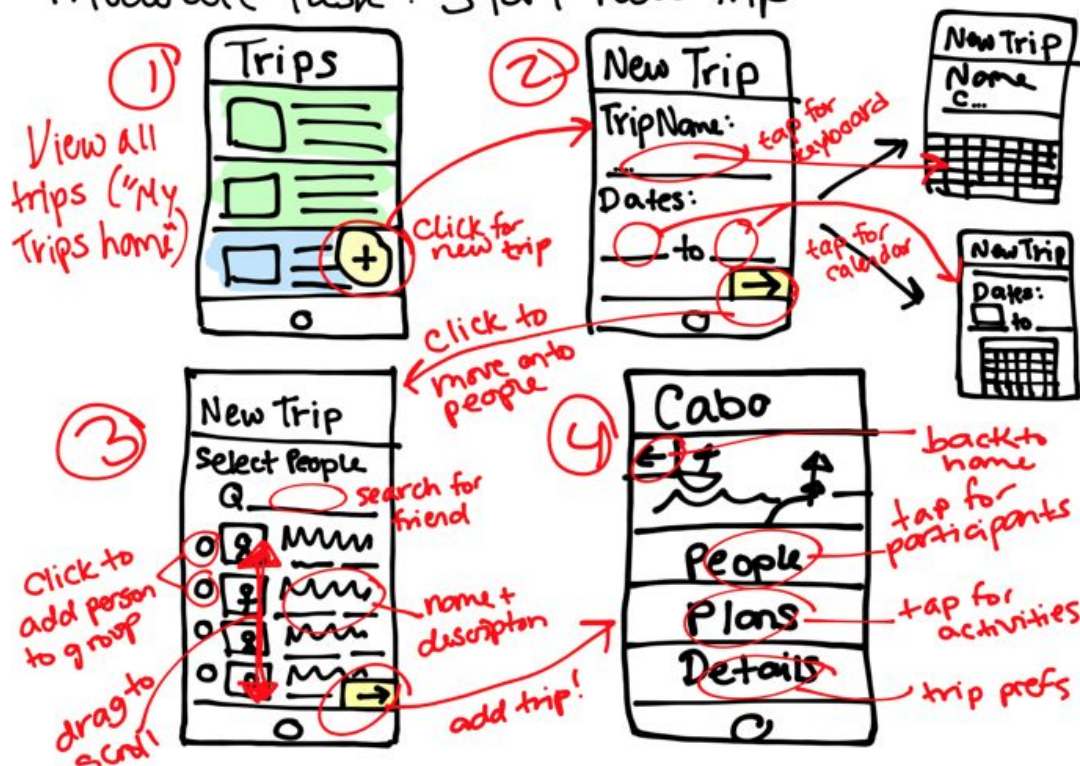 Moderate Task: Start New Trip
1
View all
trips ("My
Trips home")
Trips
+
click for
new trip
2
New Trip
Trip Name:
....
tap for
keyboard
Dates:
to
tap for
calendar
click to
move onto
people
New Trip
Name
C...
New Trip
Dates:
to
3
New Trip
Select People
search for
friend
Click to
add person
to group
name +
description
drag to
scroll
add trip!
4
Cabo
back to
home
People
tap for
participants
Plans
tap for
activities
Details
trip prefs